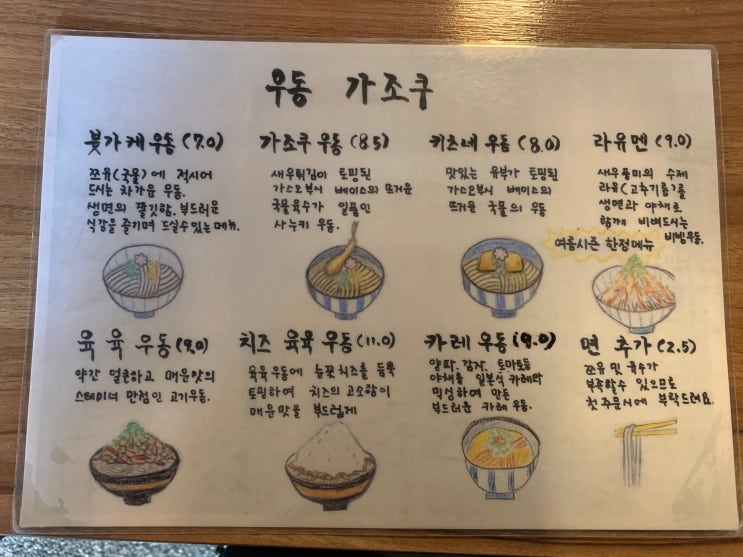 우동 가조쿠
붓가케우동 (7.0)
쯔유(국물)에 적시어
드시는 차가운 우동.
생면의 쫄깃함. 부드러운
식감을 즐기며 드실수있는메뉴.
가조쿠 우동 (8.5)
새우튀김이 토핑된
가스오부시 베이스의 뜨거운
국물육수가 일품인
사누키 우동.
키츠네 우동 (8.0)
맛있는 유부가 토핑된
가스오부시 베이스의
뜨거운 국물의 우동
라유멘 (9.0)
새우풍미의 수제
라유(고추기름)를
생면과 야채로
함께 비벼드시는
비빔우동.
여름시즌 한정메뉴
육육우동 (9.0)
약간 얼큰하고 매운맛의
스테미너 만점인 고기우동.
치즈 육육우동 (11.0)
육육우동에 눈꽃치즈를 듬뿍
토핑하여 치즈의 고소함이
매운맛을 부드럽게
카레우동 (9.0)
양파. 감자. 토마토등
야채를 일본식 카레와
믹싱하여 만든
부드러운 카레 우동.
면 추가 (2.5)
쯔유 및 육수가
부족할수 있으므로
첫 주문시에 부탁드려요.